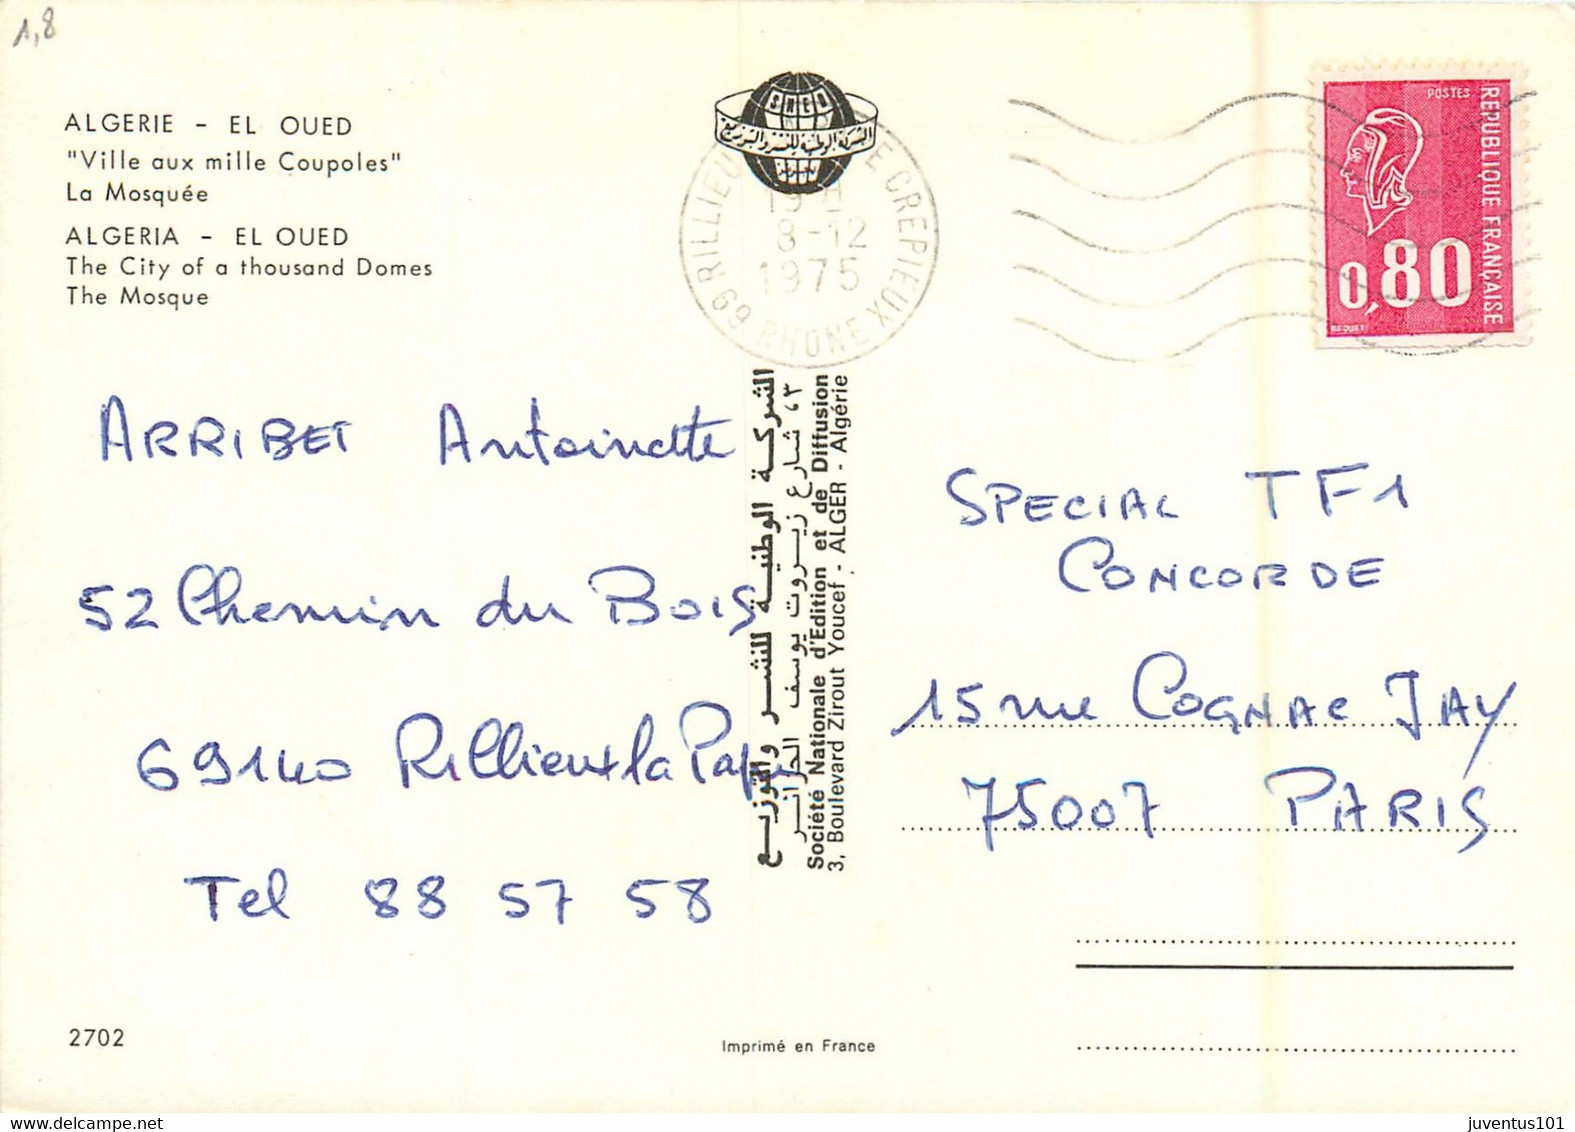 1,8
ALGERIE - EL OUED
"Ville aux mille Coupoles"
La Mosquée
ALGERIA - EL OUED
The City of a thousand Domes
The Mosque
SNED
الشركة الوطنية للنشر والتوزيع
69 RILLIEUX CREPIEUX
RHONE
8-12
1975
POSTES
REPUBLIQUE FRANÇAISE
0,80
BEQUET
ARRIBET Antoinette
52 Chemin du Bois
69140 Rillieux la Pape
Tel 88 57 58
الشركة الوطنية للنشر والتوزيع
٣، شارع زيروت يوسف الجزائر
Société Nationale d'Edition et de Diffusion
3, Boulevard Zirout Youcef - ALGER - Algérie
SPECIAL TF1
CONCORDE
15 rue COGNAC JAY
75007 PARIS
2702
Imprimé en France
juventus101